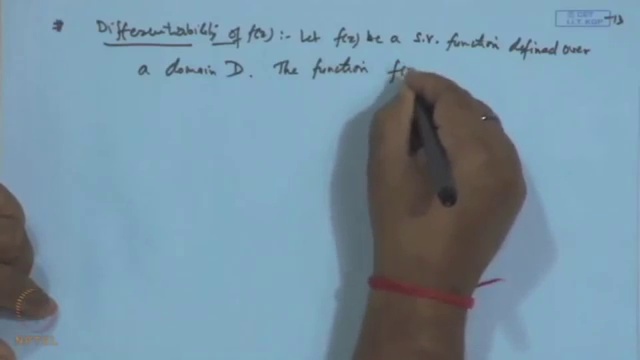 * Differentiability of f(z) :- Let f(z) be a s.v. function defined over
a domain D. The function f(
© CET
I.I.T. KGP
NPTEL